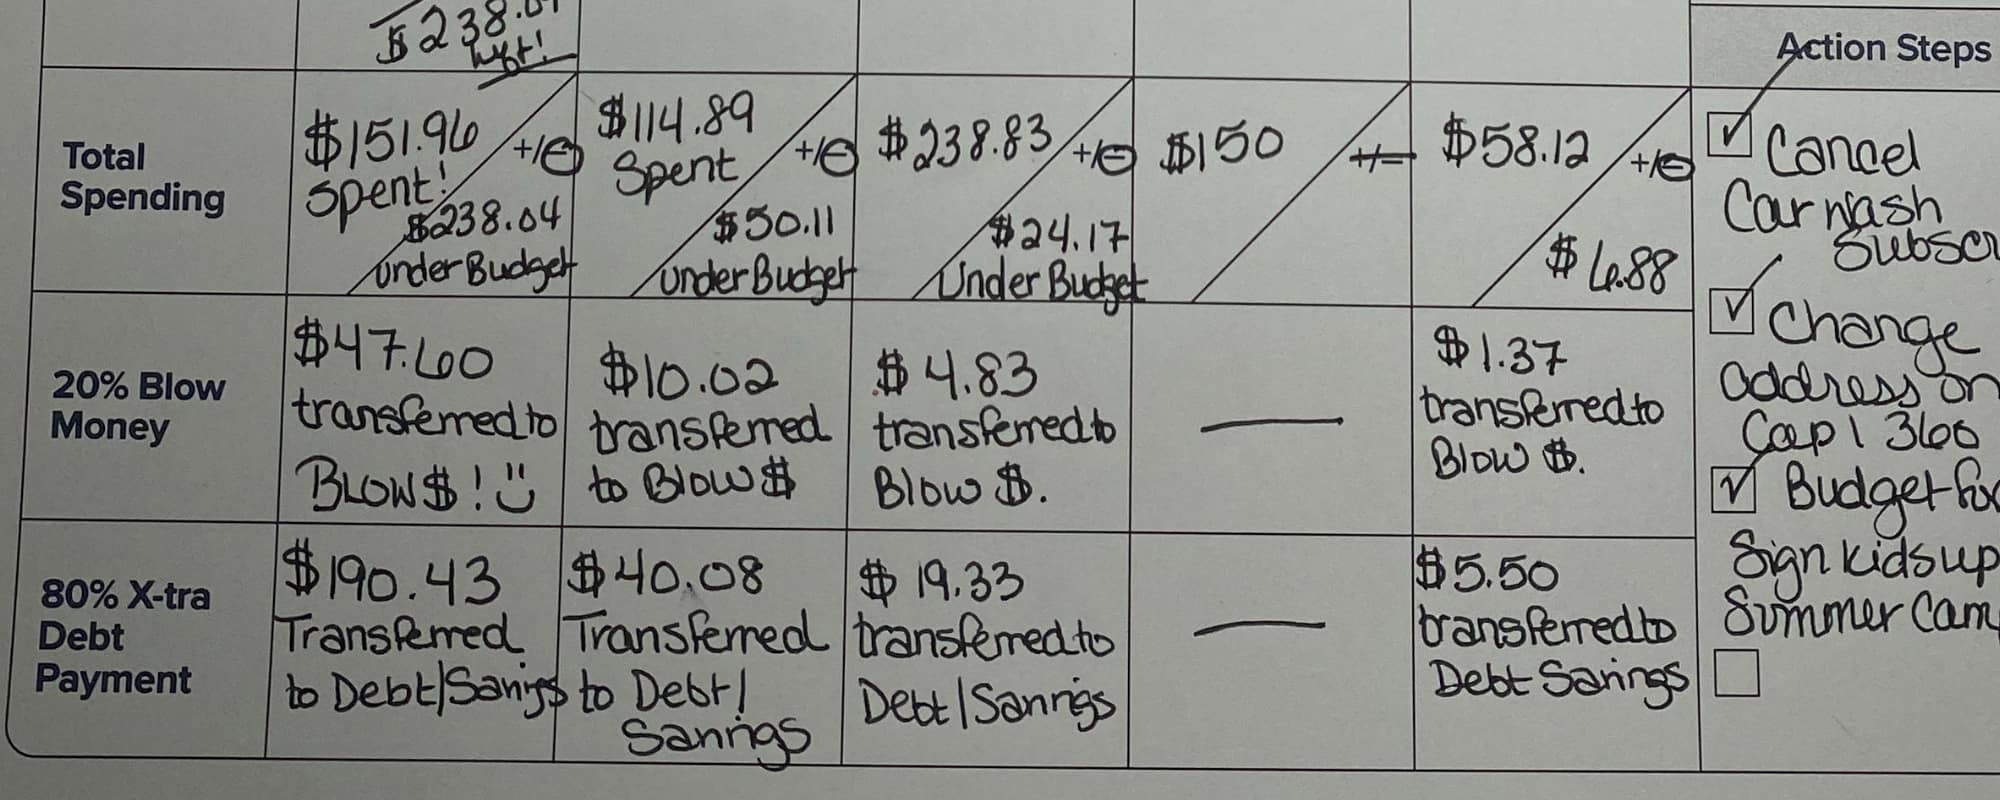 $238.04
left!
Action Steps
Total
Spending
$151.96
spent!
+/-
$238.04
under Budget
$114.89
Spent
+/-
$50.11
under Budget
$238.83
+/-
$24.17
Under Budget
$150
+/-
$58.12
+/-
$6.88
20% Blow
Money
$47.60
transferred to
BLOW$! :)
$10.02
transferred
to Blow $
$4.83
transferred to
Blow $.
—
$1.37
transferred to
Blow $.
80% X-tra
Debt
Payment
$190.43
Transferred
to Debt/Savings
$40.08
Transferred
to Debt/
Savings
$19.33
transferred to
Debt/Savings
—
$5.50
transferred to
Debt Savings
Cancel
Car wash
Subscr
Change
address on
Cap 1 360
Budget for
Sign kids up
Summer Cam